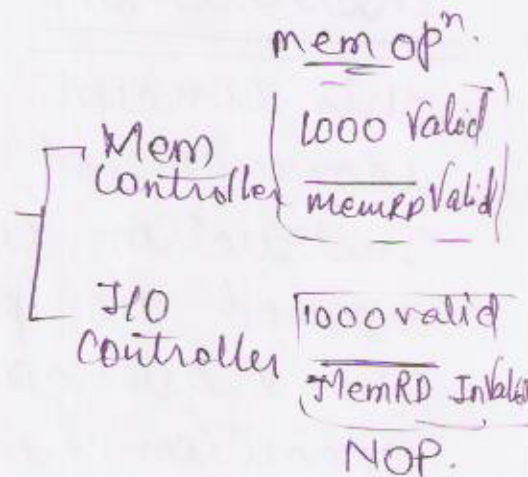 mem opⁿ.
Mem Controller
1000 Valid
MemRD Valid
I/O Controller
1000 valid
MemRD InValid
NOP.